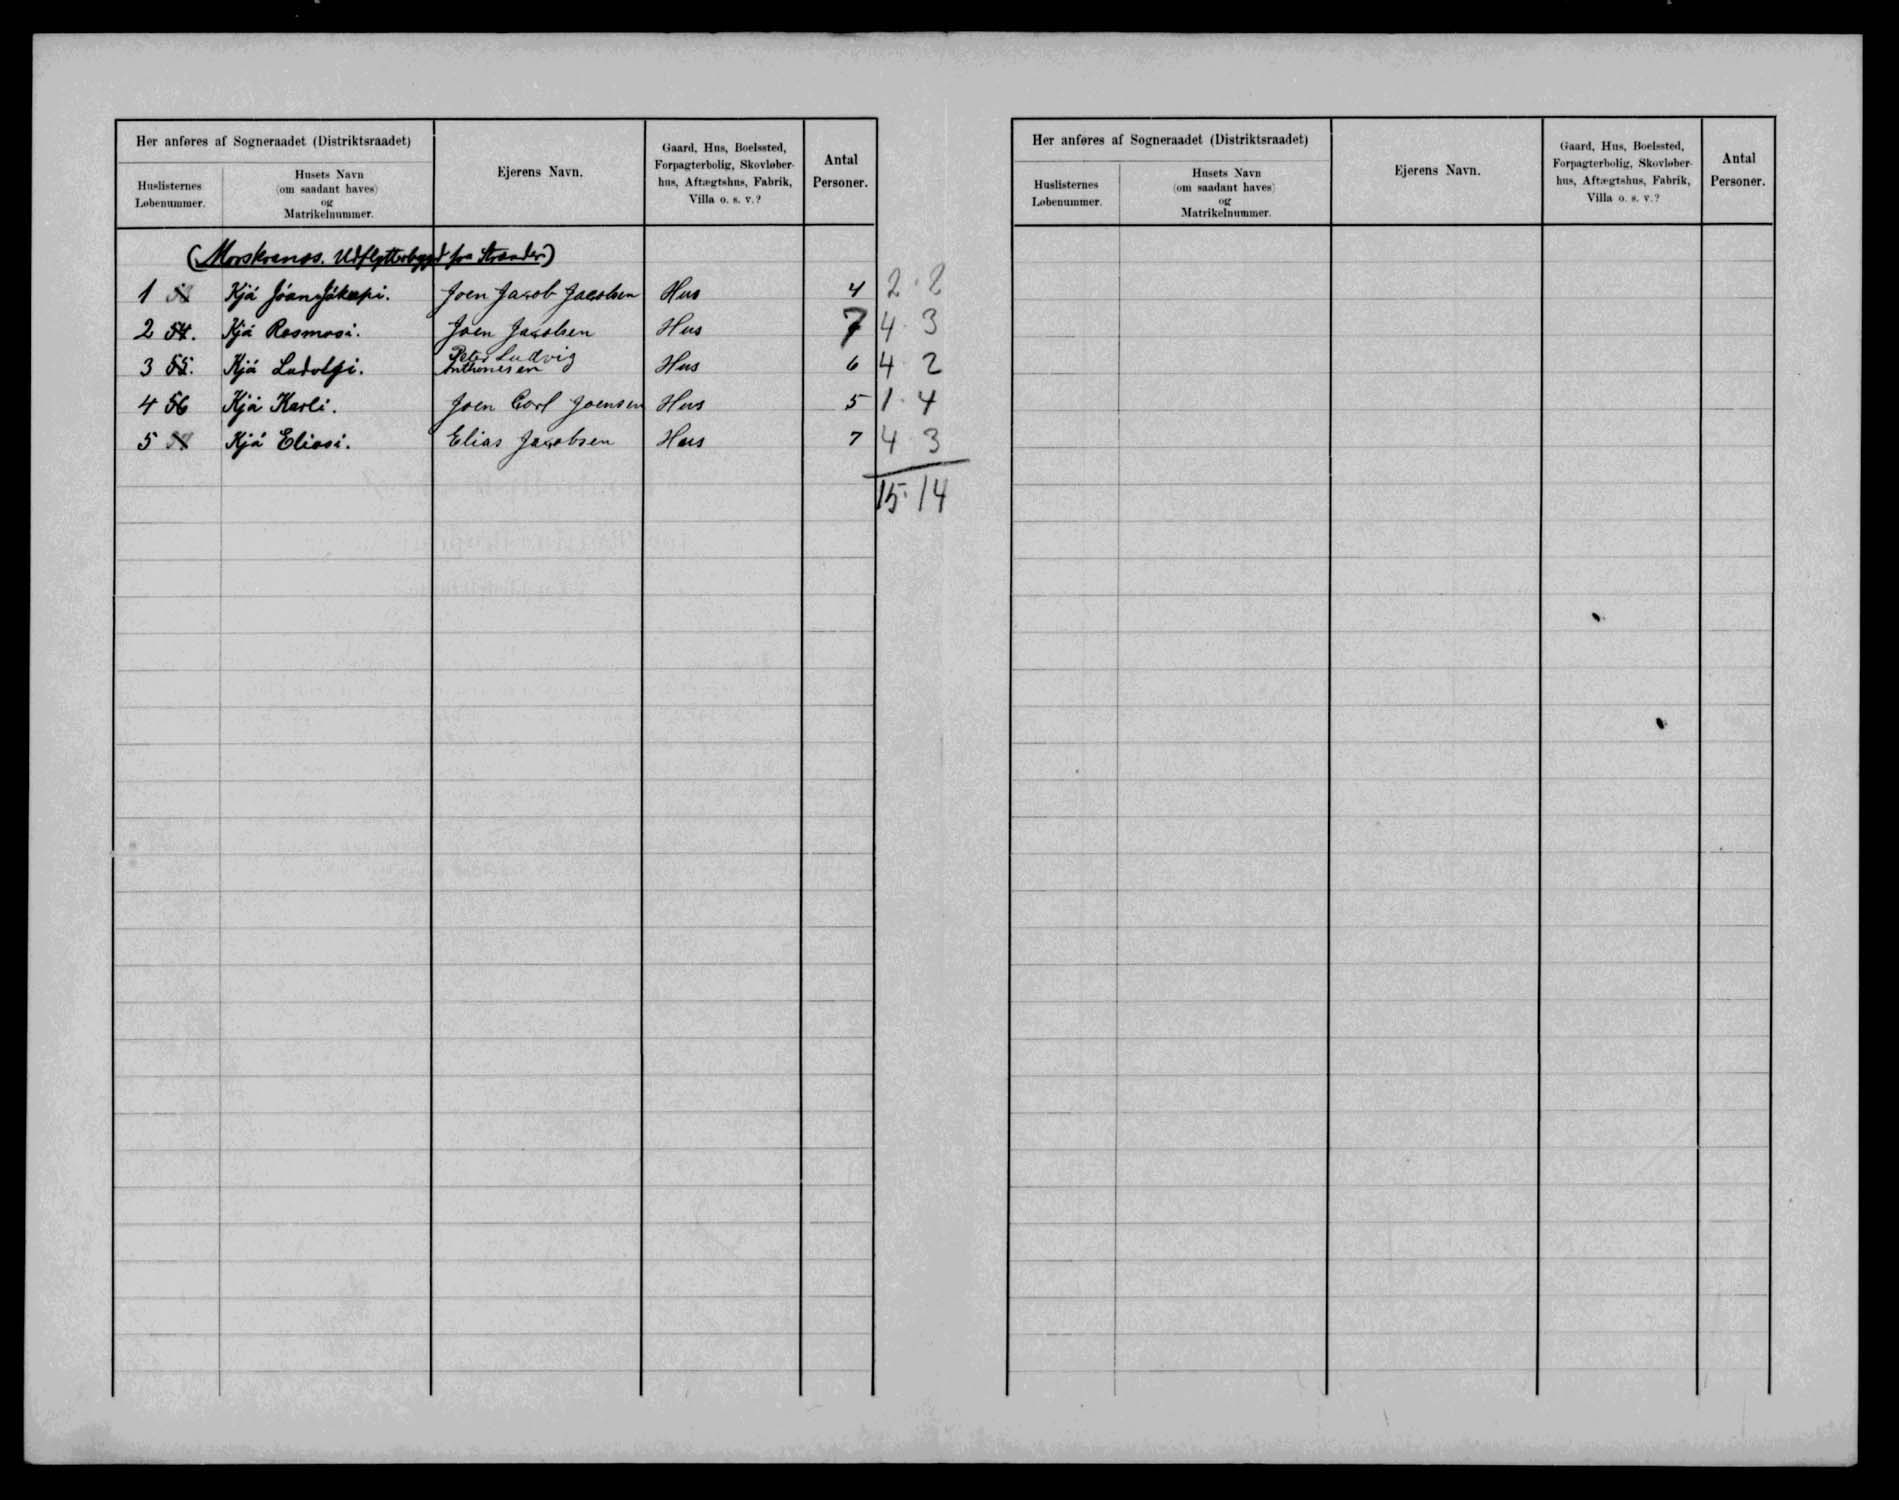 Her anføres af Sogneraadet (Distriktsraadet)
Huslisternes Løbenummer.
Husets Navn (om saadant haves) og Matrikelnummer.
Ejerens Navn.
Gaard, Hus, Boelssted, Forpagterbolig, Skovløberhus, Aftægtshus, Fabrik, Villa o. s. v.?
Antal Personer.
(Morskranes. Udflytterbygd fra Strænder)
1 Kjá Jóan Jákupi. Joen Jacob Jacobsen Hus 4 2 · 2
2 54. Kjá Rasmosi. Joen Jacobsen Hus 7 4 · 3
3 55. Kjá Ludolfi. Peter Ludvig Anthonisen Hus 6 4 · 2
4 56 Kjá Karli. Joen Carl Joensen Hus 5 1 · 4
5 Kjá Eliasi. Elias Jacobsen Hus 7 4 3
15 · 14
Her anføres af Sogneraadet (Distriktsraadet)
Huslisternes Løbenummer.
Husets Navn (om saadant haves) og Matrikelnummer.
Ejerens Navn.
Gaard, Hus, Boelssted, Forpagterbolig, Skovløberhus, Aftægtshus, Fabrik, Villa o. s. v.?
Antal Personer.